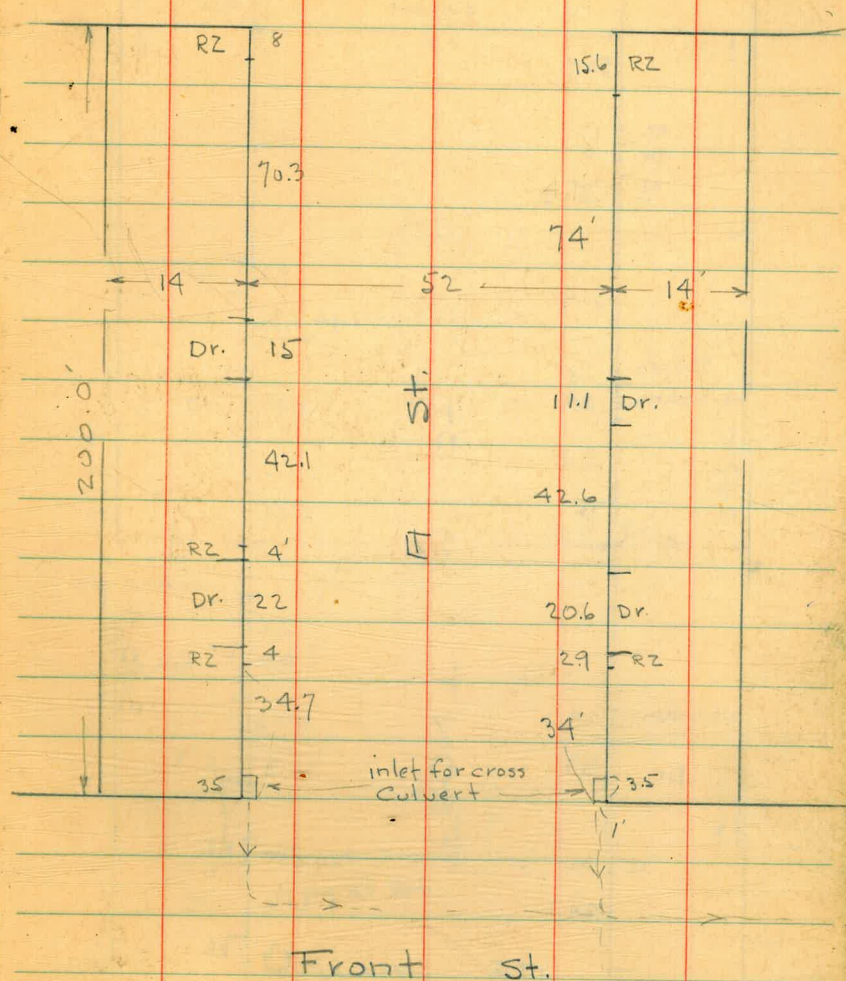 RZ 8
15.6 RZ
70.3
74'
14 52 14'
Dr. 15
11.1 Dr.
200.0'
St.
42.1
42.6
RZ 4'
Dr. 22
20.6 Dr.
RZ 4
2.9 RZ
34.7
34'
35 inlet for cross 3.5
Culvert
1'
Front St.